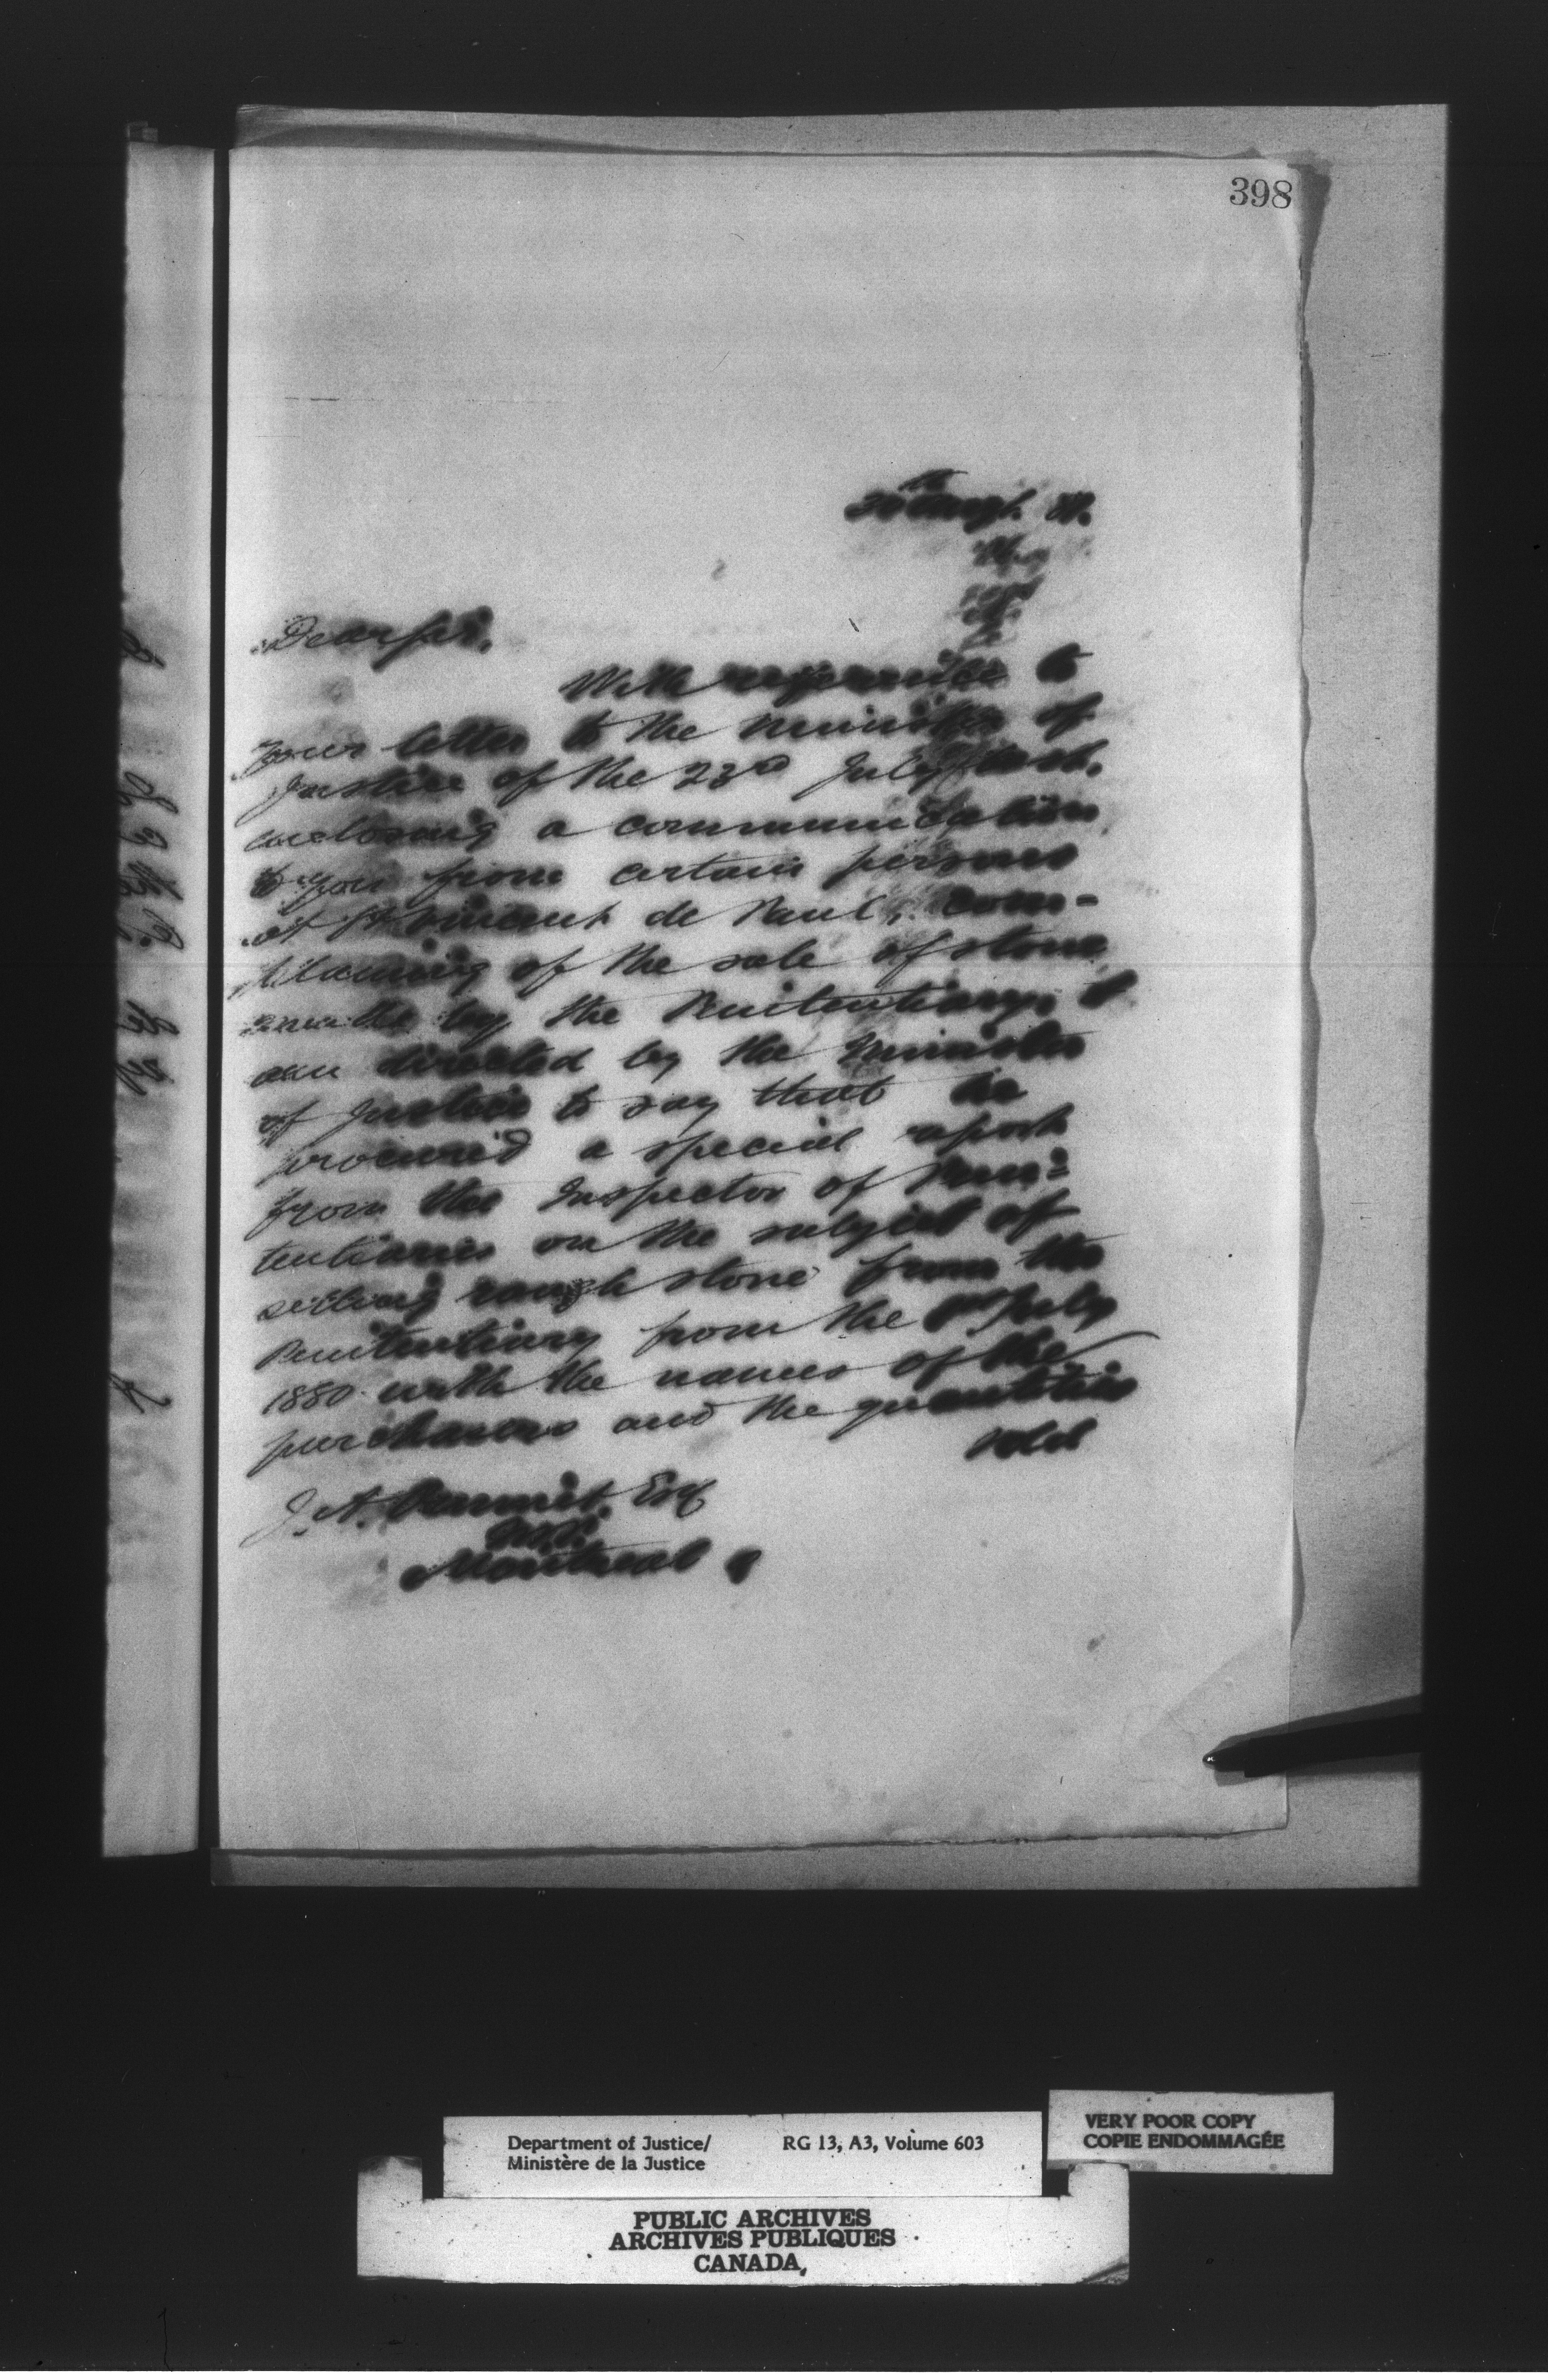 398
30th Augt. 81.
Dear Sir,
With reference to
your letter to the Minister of
Justice of the 23rd July last,
enclosing a communication
to you from certain persons
at St. Vincent de Paul, com-
plaining of the sale of stone
by the Penitentiary, I
am directed by the Minister
of Justice to say that he
procured a special report
from the Inspector of Peni-
tentiaries on the subject of
selling rough stone from the
Penitentiary from the 1st July
1880 with the names of the
purchasers and the quantities
sold
J. A. Esq
M.P.
Montreal
Department of Justice/ RG 13, A3, Volume 603
Ministère de la Justice
VERY POOR COPY
COPIE ENDOMMAGÉE
PUBLIC ARCHIVES
ARCHIVES PUBLIQUES
CANADA